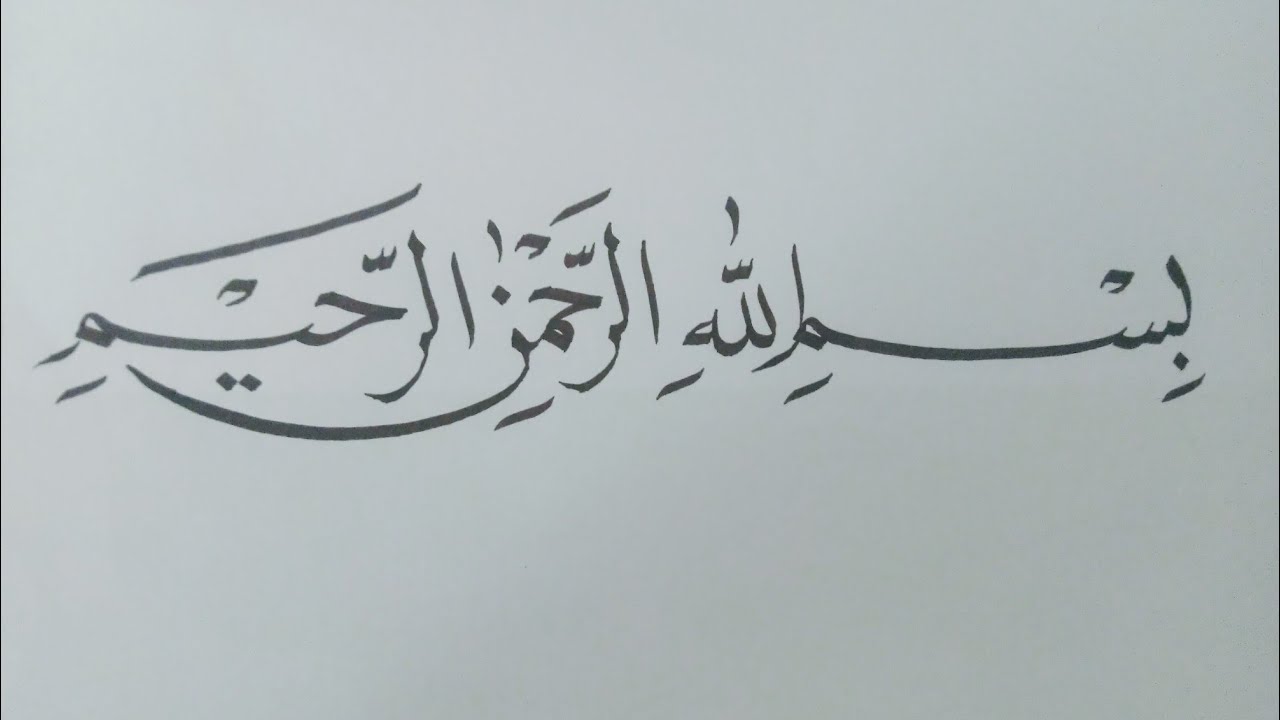 بِسْمِ اللّٰهِ الرَّحْمٰنِ الرَّحيْمِ